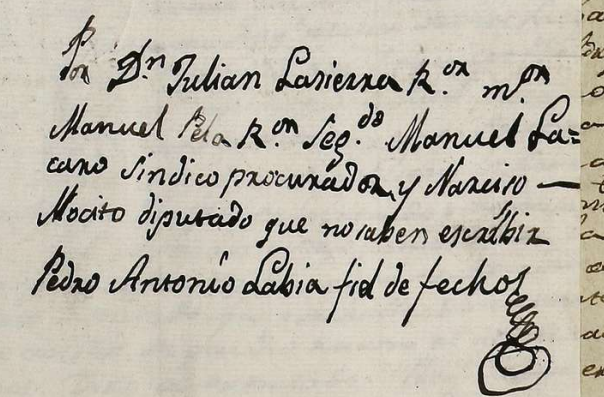 Por Dn Julian Lasierra R.or m.or
Manuel Pela R.or Seg.do Manuel La=
cano Sindico procurador, y Narciso —
Mocito diputado que no saben escribir
Pedro Antonio Labia fiel de fechos